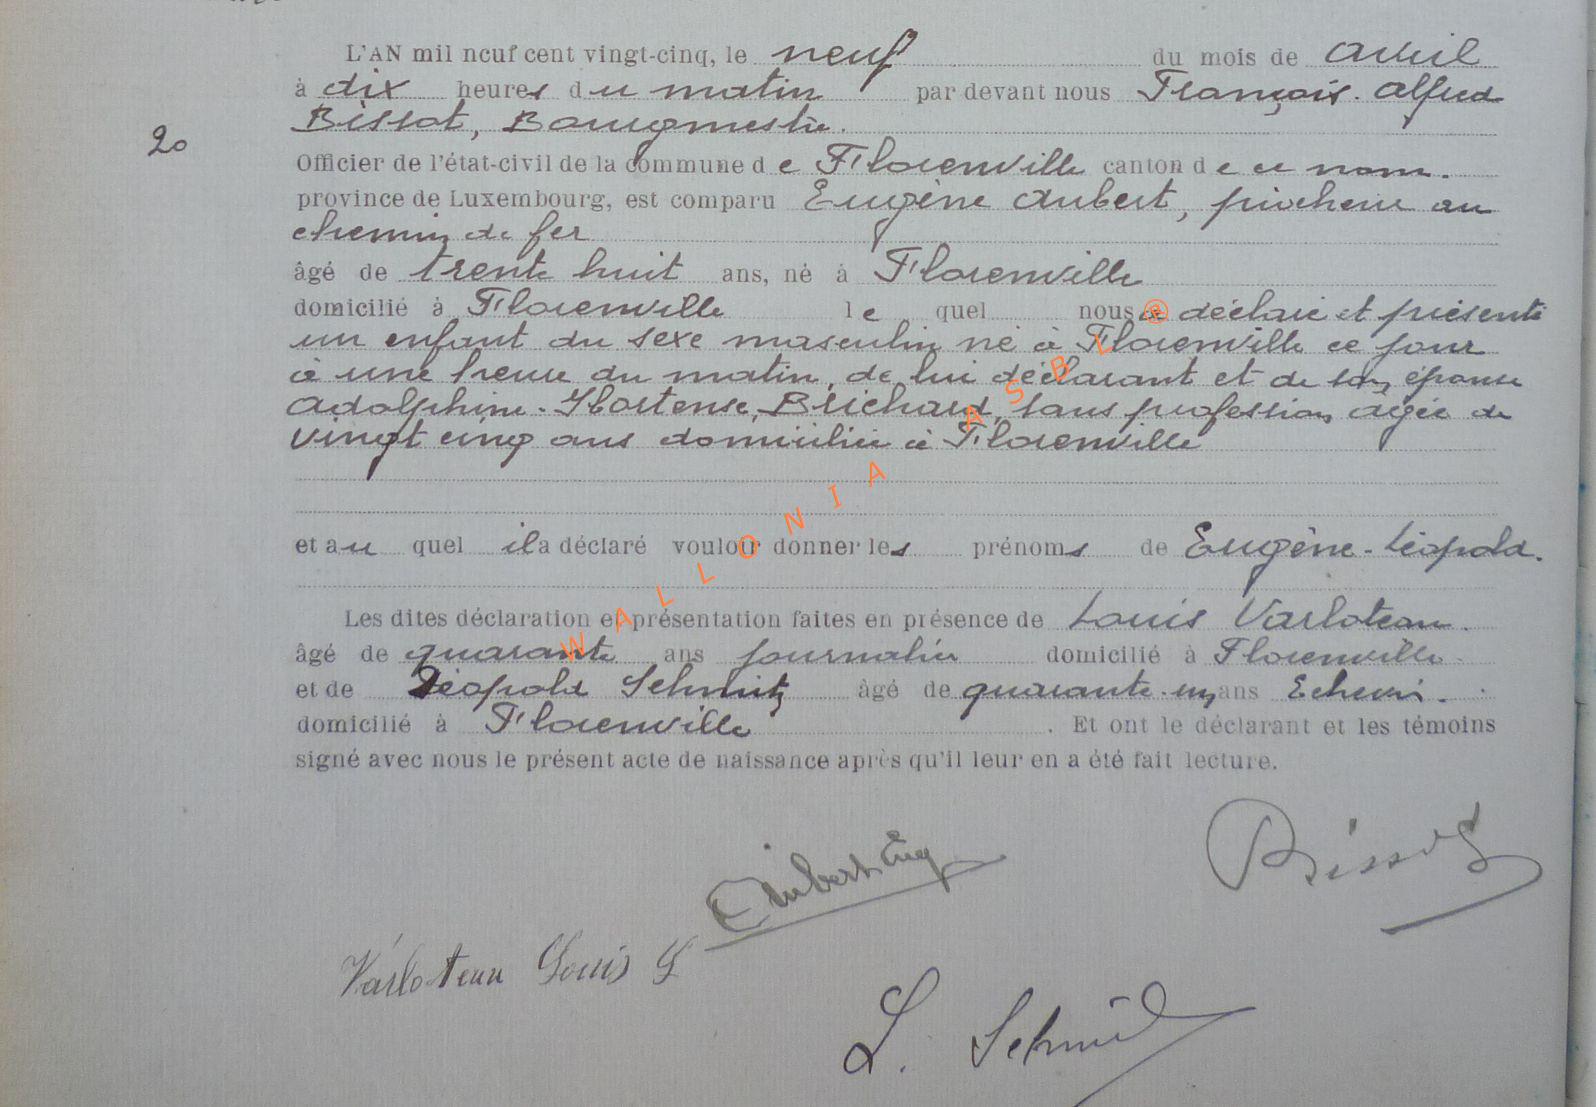 L'AN mil neuf cent vingt-cinq, le neuf du mois de avril
à dix heures du matin par devant nous François-Alfred
Bissot, Bourgmestre.
20
Officier de l'état-civil de la commune de Florenville canton de ce nom.
province de Luxembourg, est comparu Eugène Aubert, piocheur au
chemin de fer
âgé de trente huit ans, né à Florenville
domicilié à Florenville lequel nous a déclaré et présenté
un enfant du sexe masculin né à Florenville ce jour
à une heure du matin, de lui déclarant et de son épouse
Adolphine-Hortense Brichard, sans profession âgée de
vingt cinq ans domiciliée à Florenville
et auquel il a déclaré vouloir donner les prénoms de Eugène-Léopold.
Les dites déclaration et présentation faites en présence de Louis Varloteau.
âgé de quarante ans journalier domicilié à Florenville
et de Léopold Schmitz âgé de quarante-un ans Echevin.
domicilié à Florenville . Et ont le déclarant et les témoins
signé avec nous le présent acte de naissance après qu'il leur en a été fait lecture.
Aubert Eug
Bissot
Varloteau Louis
L. Schmitz
@ WALLONIA ASBL